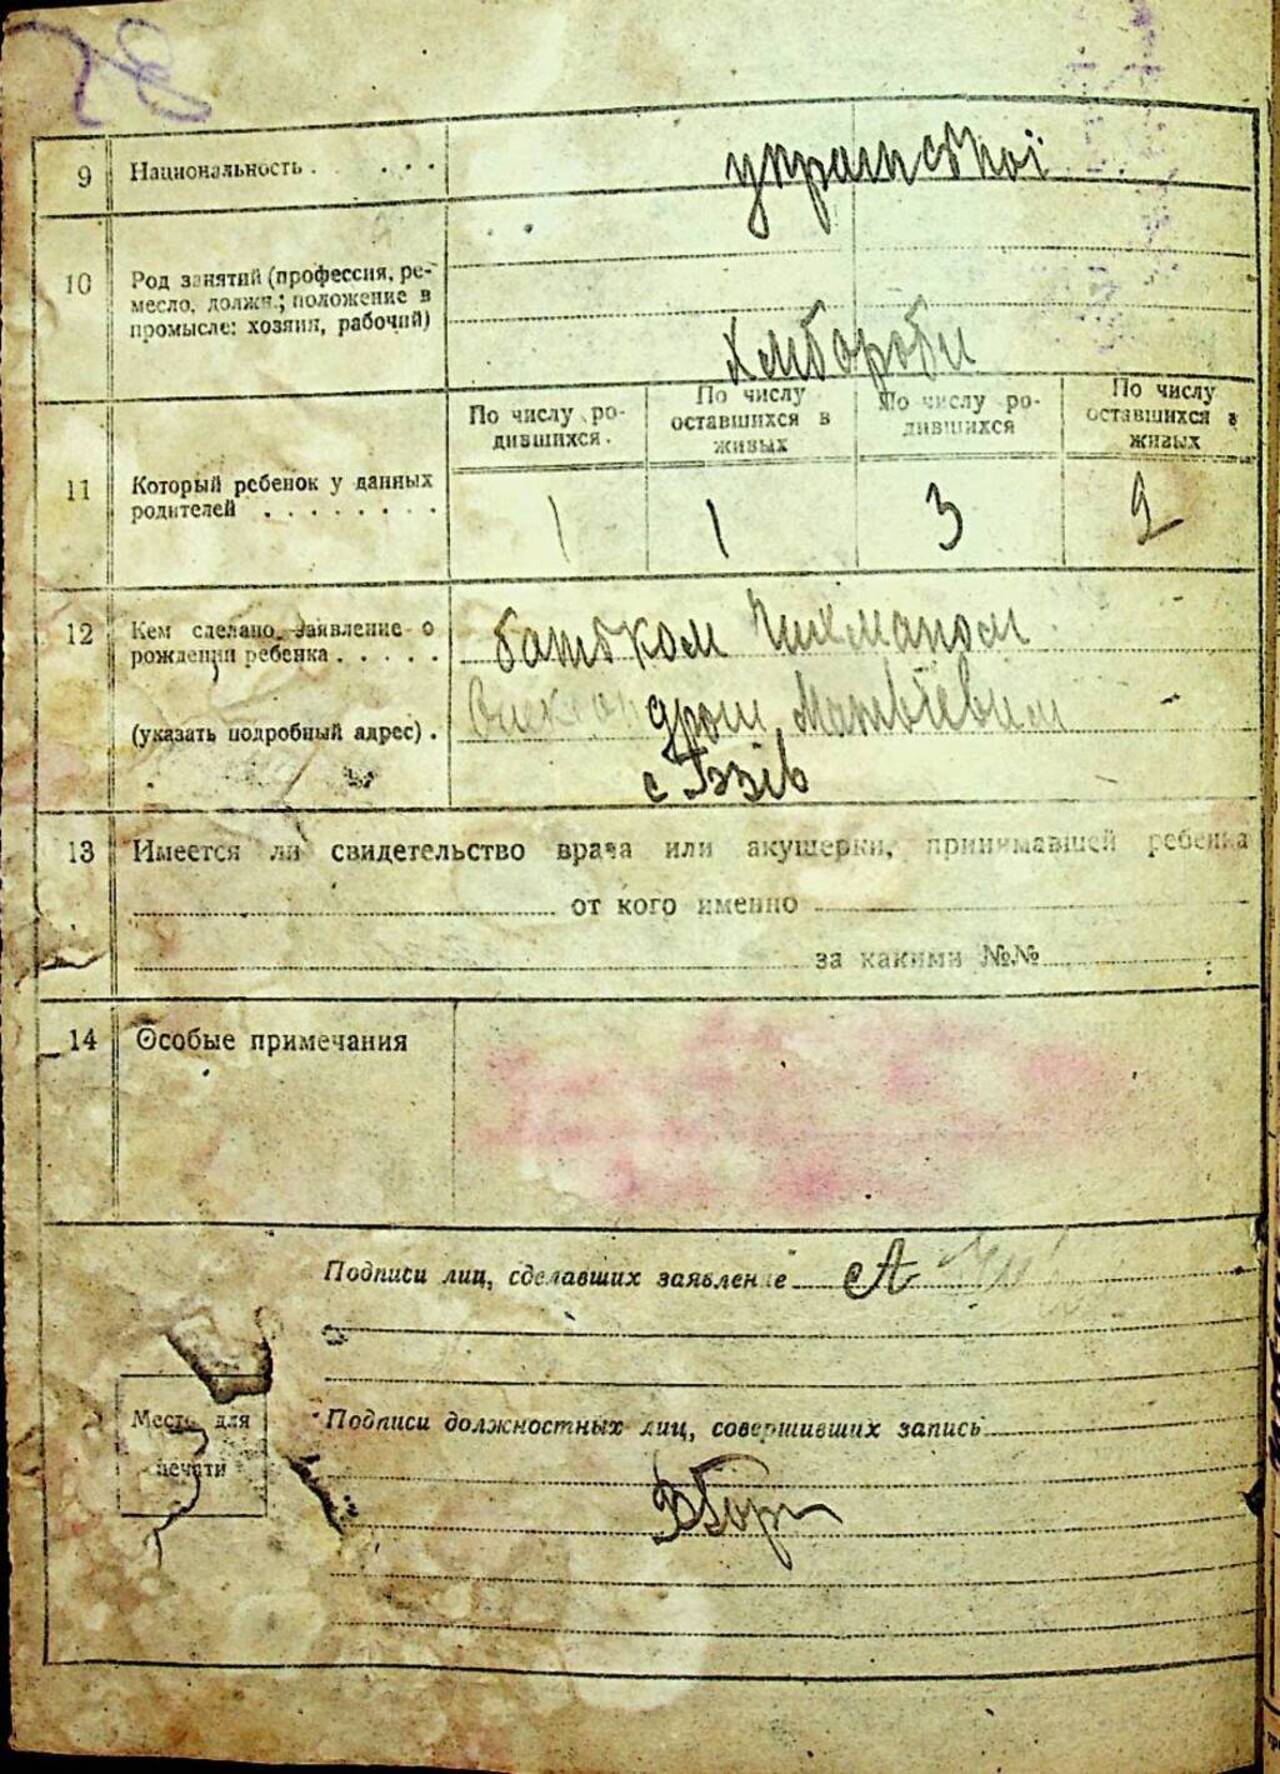 78
9 Национальность . . . . української
10 Род занятий (профессия, ре-
месло, должн.; положение в
промысле: хозяин, рабочий)
хлібороби
По числу ро-
дившихся.
По числу
оставшихся в
живых
По числу ро-
дившихся
По числу
оставшихся в
живых
11 Который ребенок у данных
родителей . . . . . . . .
1 1 3 2
12 Кем сделано заявление о
рождении ребенка . . . . .
батьком
Олександром Матвієвим
(указать подробный адрес) .
с
13 Имеется ли свидетельство врача или акушерки, принимавшей ребенка
от кого именно
за какими №№
14 Особые примечания
Подписи лиц, сделавших заявление А
Место для
печати
Подписи должностных лиц, совершивших запись